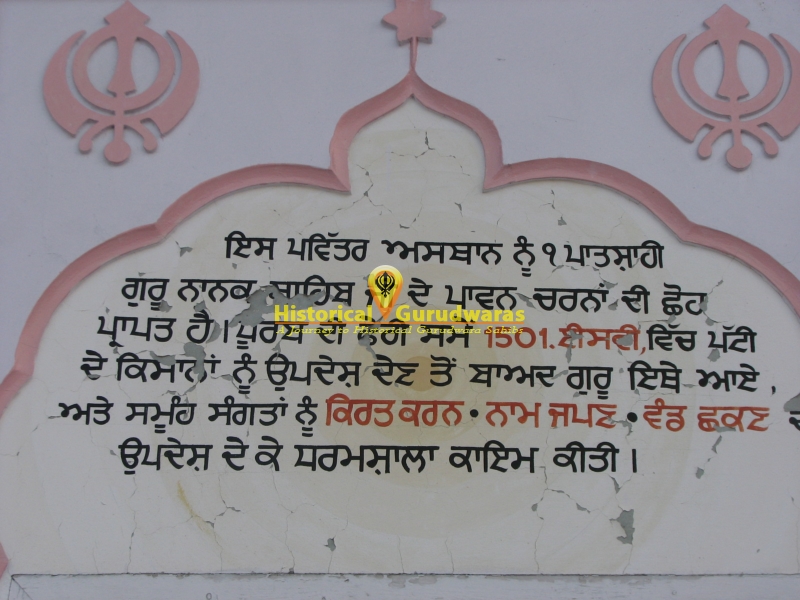 ਇਸ ਪਵਿੱਤਰ ਅਸਥਾਨ ਨੂੰ ੧ ਪਾਤਸ਼ਾਹੀ
ਗੁਰੂ ਨਾਨਕ ਸਾਹਿਬ ਜੀ ਦੇ ਪਾਵਨ ਚਰਨਾਂ ਦੀ ਛੋਹ
Historical Gurudwaras
A Journey to Historical Gurudwara Sahibs
ਪ੍ਰਾਪਤ ਹੈ। ਦੀ 1501. ਈਸਵੀ, ਵਿੱਚ ਪੱਟੀ
ਦੇ ਕਿਸਾਨਾਂ ਨੂੰ ਉਪਦੇਸ਼ ਦੇਣ ਤੋਂ ਬਾਅਦ ਗੁਰੂ ਇਥੇ ਆਏ,
ਅਤੇ ਸਮੂੰਹ ਸੰਗਤਾਂ ਨੂੰ ਕਿਰਤ ਕਰਨ • ਨਾਮ ਜਪਣ • ਵੰਡ ਛਕਣ
ਉਪਦੇਸ਼ ਦੇ ਕੇ ਧਰਮਸ਼ਾਲਾ ਕਾਇਮ ਕੀਤੀ।